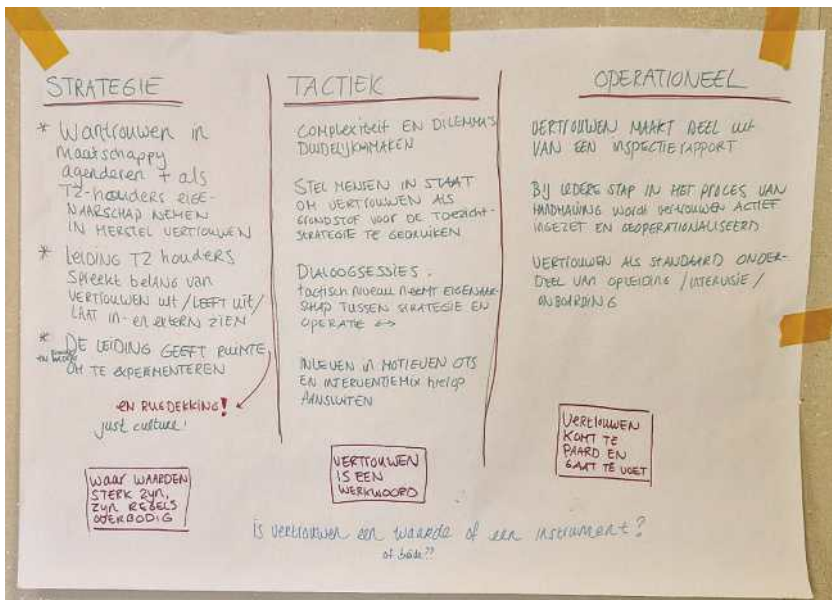 STRATEGIE
* Wantrouwen in
maatschappy
agenderen + als
TZ-houders eige-
NAARSCHAP NEMEN
IN HERSTEL VERTROUWEN
* LEIDING TZ houders
Spreekt belang van
VERTROUWEN uit / LEEFT uit /
LAAT in- en extern ZIEN
* DE LEIDING GEEFT RUIMTE
OM TE EXPERIMENTEREN
EN RUGDEKKING!
just culture!
Waar WAARDEN
STERK zyn,
zyn REGELS
OVERBODIG
TACTIEK
COMPLEXITEIT EN DILEMMA'S
DUIDELIJK MAKEN
STEL MENSEN IN STAAT
OM VERTROUWEN ALS
GRONDSTOF VOOR DE TOEZICHT-
STRATEGIE TE GEBRUIKEN
DIALOOGSESSIES:
tactisch niveau neemt EIGENAAR-
SCHAP TUSSEN STRATEGIE EN
OPERATIE ↔
INLEVEN in MOTIEVEN OTS
EN INTERVENTIEMIX hierop
AANSLUITEN
VERTROUWEN
IS EEN
WERKWOORD
OPERATIONEEL
VERTROUWEN MAAKT DEEL uit
VAN EEN INSPECTIERAPPORT
BIJ IEDERE STAP IN HET PROCES VAN
HANDHAVING wordt vertrouwen ACTIEF
INGEZET EN GEOPERATIONALISEERD
VERTROUWEN ALS STANDAARD ONDER-
DEEL VAN OPLEIDING / INTERVISIE /
ONBOARDING
VERTROUWEN
KOMT TE
PAARD EN
GAAT TE VOET
is vertrouwen een waarde of een instrument?
of beide??